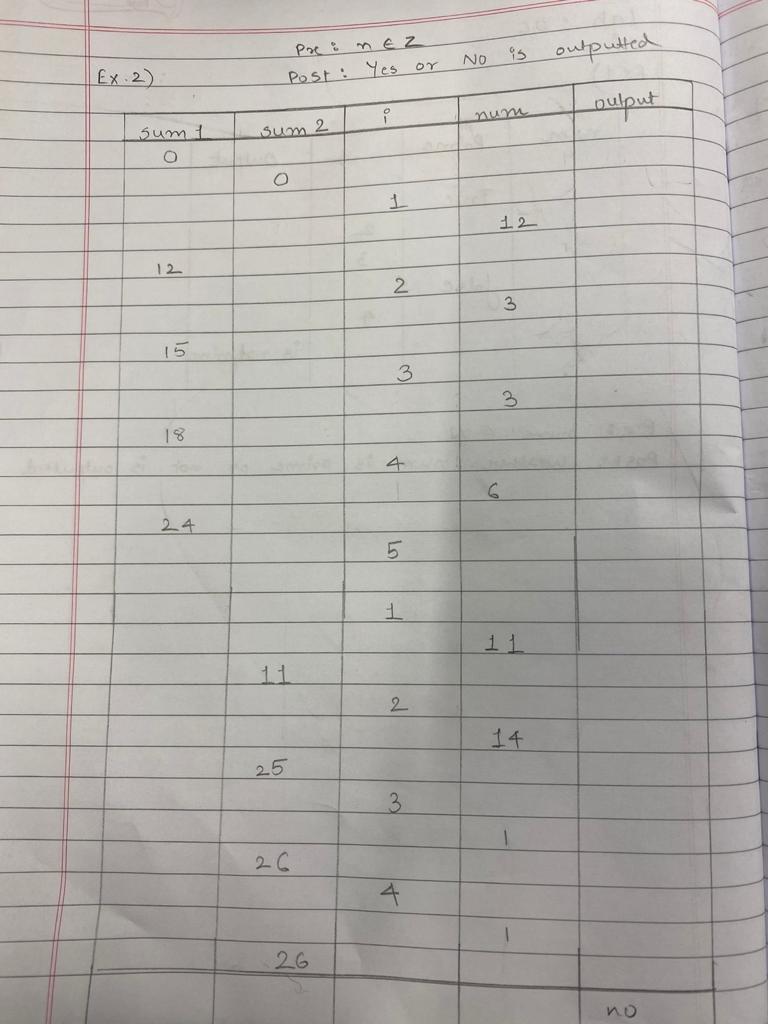 Pre : n ∈ Z
Ex.2) Post : Yes or No is outputted
sum 1 sum 2 i num output
0
0
1
12
12
2
3
15
3
3
18
4
6
24
5
1
11
11
2
14
25
3
1
26
4
1
26
no